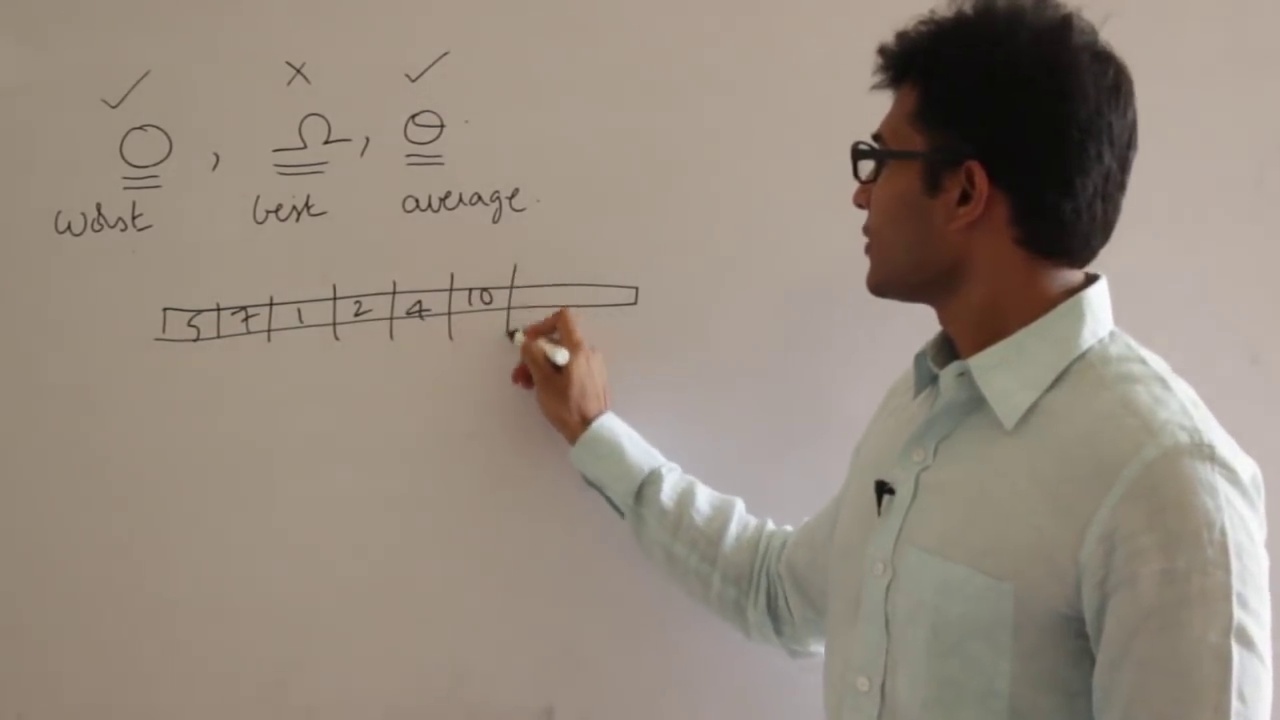 O, Ω, Θ
worst best average.
5 7 1 2 4 10